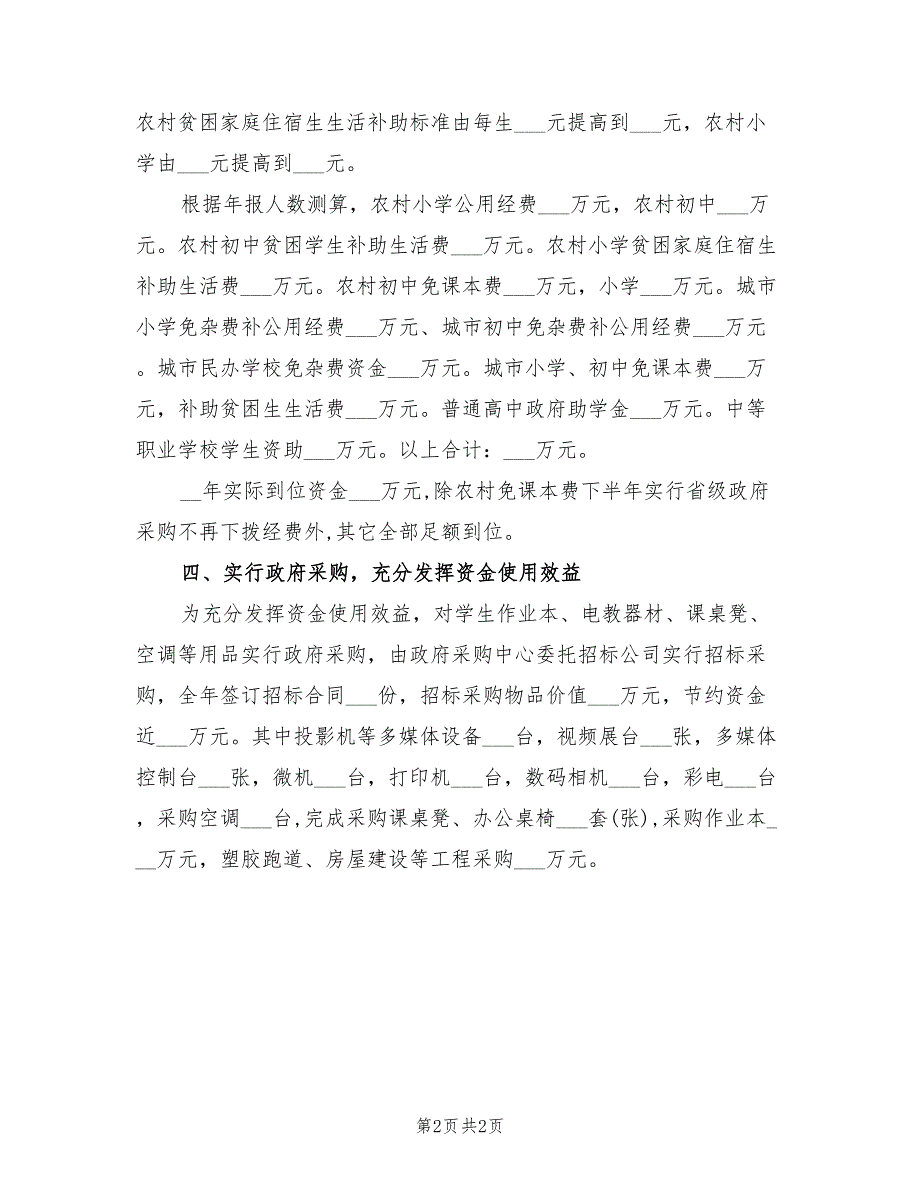 农村贫困家庭住宿生生活补助标准由每生___元提高到___元，农村小
学由___元提高到___元。
根据年报人数测算，农村小学公用经费___万元，农村初中___万
元。农村初中贫困学生补助生活费___万元。农村小学贫困家庭住宿生
补助生活费___万元。农村初中免课本费___万元，小学___万元。城市
小学免杂费补公用经费___万元、城市初中免杂费补公用经费___万元
。城市民办学校免杂费资金___万元。城市小学、初中免课本费___万
元，补助贫困生生活费___万元。普通高中政府助学金___万元。中等
职业学校学生资助___万元。以上合计：___万元。
__年实际到位资金___万元,除农村免课本费下半年实行省级政府
采购不再下拨经费外,其它全部足额到位。
四、实行政府采购，充分发挥资金使用效益
为充分发挥资金使用效益，对学生作业本、电教器材、课桌凳、
空调等用品实行政府采购，由政府采购中心委托招标公司实行招标采
购，全年签订招标合同___份，招标采购物品价值___万元，节约资金
近___万元。其中投影机等多媒体设备___台，视频展台___张，多媒体
控制台___张，微机___台，打印机___台，数码相机___台，彩电___台
，采购空调___台,完成采购课桌凳、办公桌椅___套(张),采购作业本_
__万元，塑胶跑道、房屋建设等工程采购___万元。
第2页 共2页